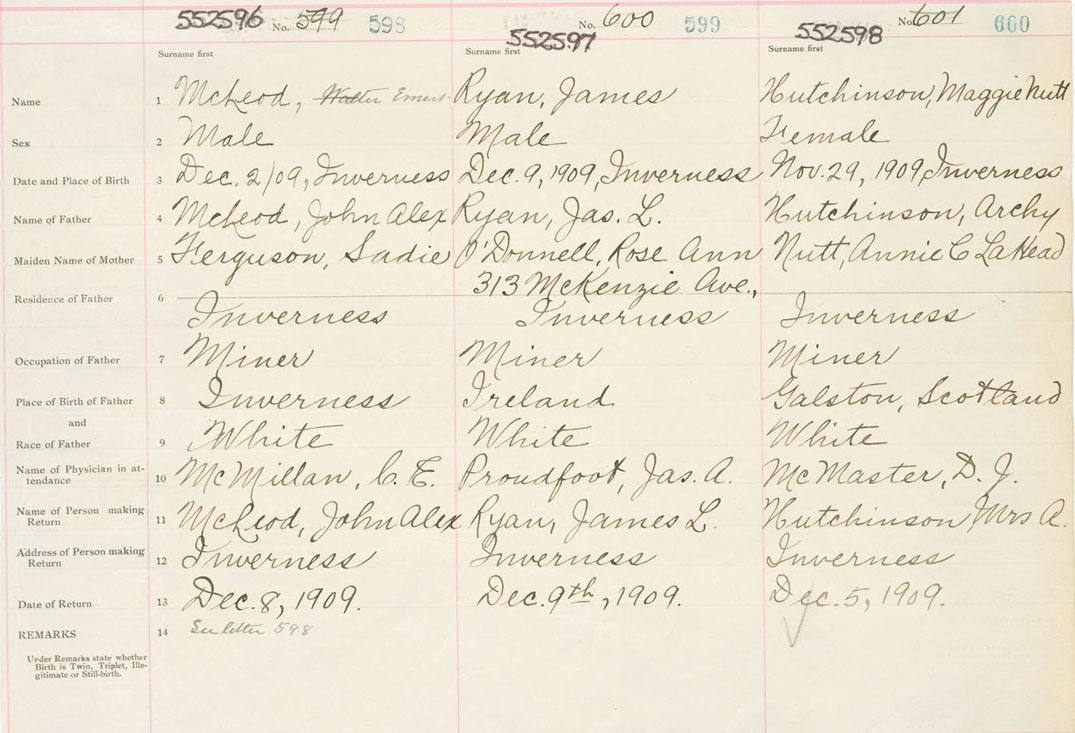 552596 No. 599 598 No. 600 599 No. 601 600
552597 552598
Surname first Surname first Surname first
Name 1 McLeod, Walter Ernest Ryan, James Hutchinson, Maggie Nutt
Sex 2 Male Male Female
Date and Place of Birth 3 Dec. 2/09, Inverness Dec. 9, 1909, Inverness Nov. 29, 1909, Inverness
Name of Father 4 McLeod, John Alex Ryan, Jas. L. Hutchinson, Archy
Maiden Name of Mother 5 Ferguson, Sadie O'Donnell, Rose Ann Nutt, Annie C LaHead
313 McKenzie Ave.,
Residence of Father 6 Inverness Inverness Inverness
Occupation of Father 7 Miner Miner Miner
Place of Birth of Father 8 Inverness Ireland Galston, Scotland
and
Race of Father 9 White White White
Name of Physician in at-
tendance 10 McMillan, C. E. Proudfoot, Jas. A. McMaster, D. J.
Name of Person making
Return 11 McLeod, John Alex Ryan, James L. Hutchinson Mrs A.
Address of Person making
Return 12 Inverness Inverness Inverness
Date of Return 13 Dec. 8, 1909. Dec. 9th, 1909. Dec. 5, 1909.
REMARKS 14 See letter 598
Under Remarks state whether
Birth is Twin, Triplet, Ille-
gitimate or Still-birth.